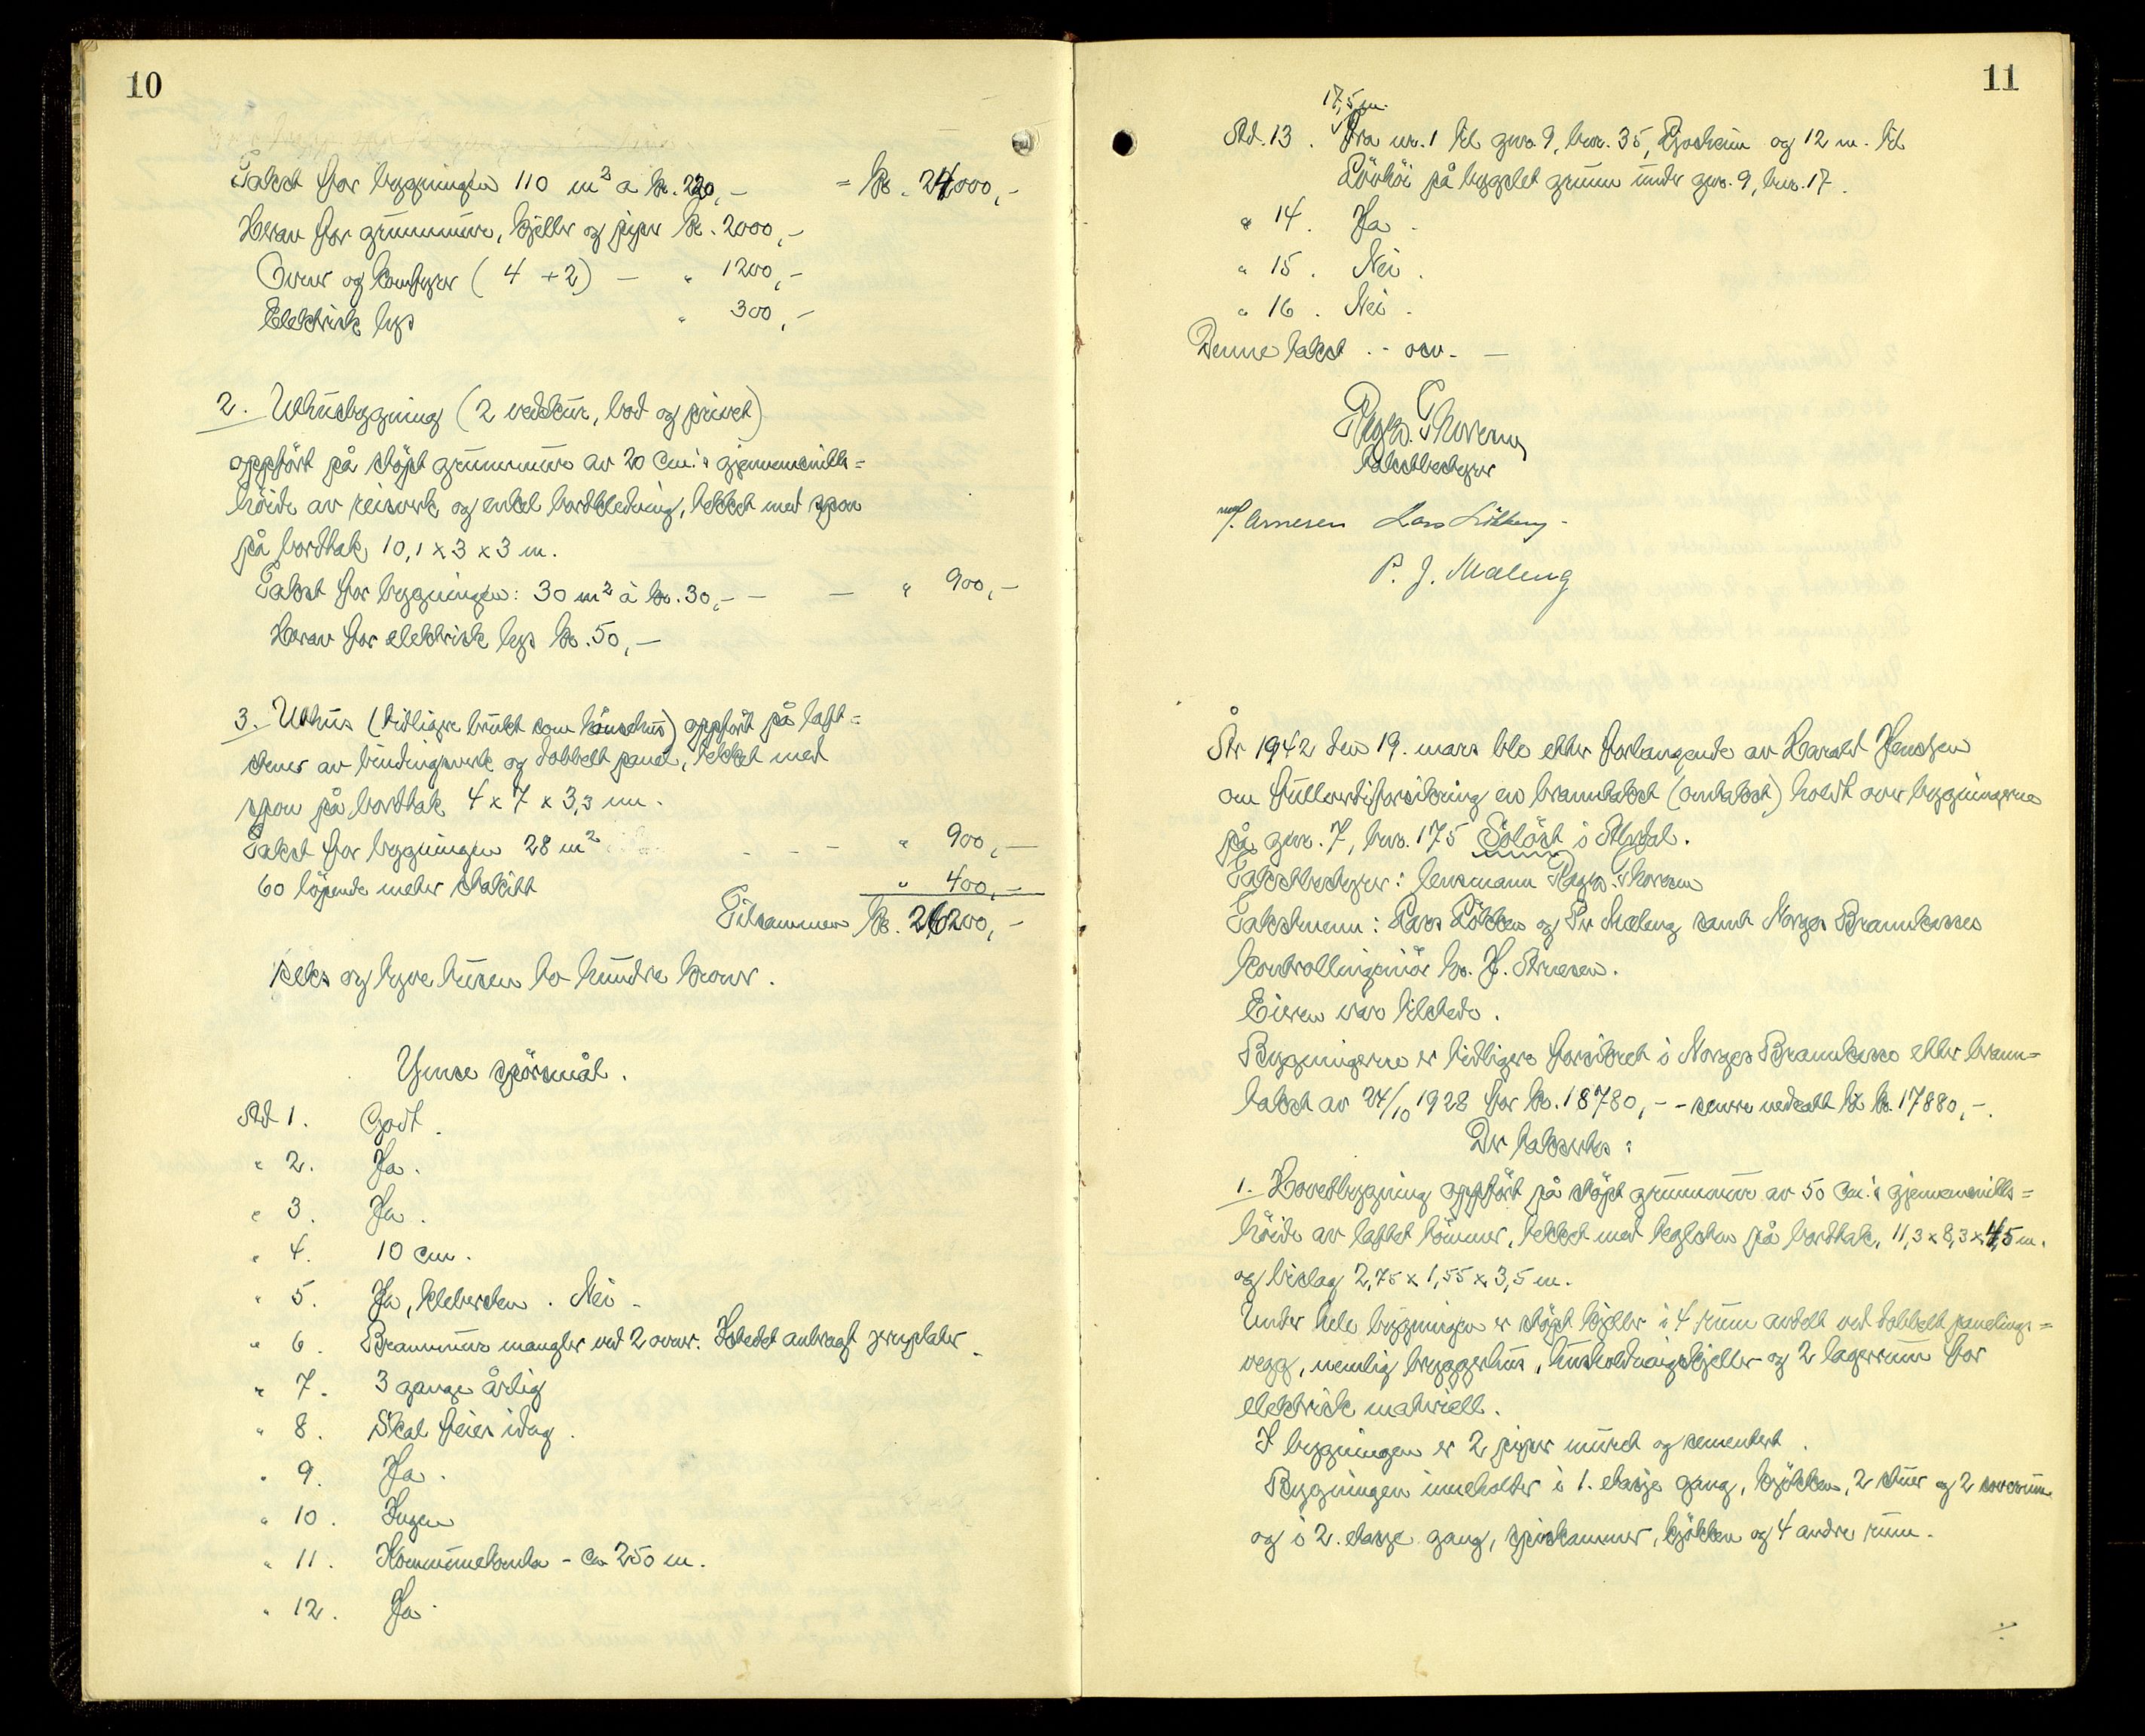 10
Takst for bygningen 110 m² a kr. 220,- = kr. 24000,-
Herav for grunnmure, kjeller og piper kr. 2000,-
Ovner og komfyrer (4 + 2) — " 1200,-
Elektrisk lys " 300,-
2. Uthusbygning (2 vedskur, bod og privet)
oppført på støpt grunnmur av 20 cm.s gjennemsnitts=
høide av reisverk og enkel bordkledning, tekket med spon
på bordtak 10,1 x 3 x 3 m.
Takst for bygningen: 30 m² à kr. 30,- — — " 900,-
Herav for elektrisk lys kr. 50,—
3. Uthus (tidligere brukt som hönsehus) oppført på løft=
stener av bindingsverk og dobbelt panel, tekket med
spon på bordtak 4 x 7 x 3,3 m.
Takst for bygningen 28 m² - - - " 900,-
60 löpende meter stakitt " 400,-
Tilsammen kr. 26200,-
seks og tyve tusen to hundre kroner.
Ymse spörsmål.
Ad 1. Godt.
" 2. Ja.
" 3. Ja.
" 4. 10 cm.
" 5. Ja, klebersten. Nei.
" 6. Brannmur mangler ved 2 ovner. Istedet anbragt jernplater.
" 7. 3 gange årlig
" 8. Skal feies idag.
" 9. Ja.
" 10. Ingen
" 11. Kommunelokale - ca 250 m.
" 12. Ja.
11
17,5 m.
Ad. 13. Fra nr. 1 til gnr. 9, bnr. 35, og 12 m. til
Lövhöi på bygslet grunn under gnr. 9, bnr. 17.
" 14. Ja.
" 15. Nei.
" 16. Nei.
Denne takst .- osv. —
Thoresen
takstbestyrer
J. Arnesen Lars Lökken
P. J. Mæleng
År 1942 den 19. mars ble etter forlangende av Harald Jensen
om fullverdiforsikring en branntakst (omtakst) holdt over bygningerne
på gnr. 7, bnr. 175 Soløst i Alvdal.
Takstbestyrer: lensmann Thoresen
Takstmenn: Lars Lökken og Per Mæleng samt Norges Brannkasses
kontrollingeniör hr. J. Arnesen.
Eieren var tilstede.
Bygningerne er tidligere forsikret i Norges Brannkasse etter brann=
takst av 24/10 1928 for kr. 18780,- - senere nedsatt til kr. 17880,-.
Der takseres:
1. Hovedbygning oppført på støpt grunnmur av 50 cm.s gjennemsnitts=
høide av laftet tömmer, tekket med teglsten på bordtak, 11,3 x 8,3 x 4,5 m.
og bislag 2,75 x 1,55 x 3,5 m.
Under hele bygningen er støpt kjeller i 4 rum avdelt ved dobbelt panelings=
vegg, nemlig bryggerhus, husholdningskjeller og 2 lagerrum for
elektrisk materiell.
I bygningen er 2 piper muret og sementert.
Bygningen inneholder i 1. etasje gang, kjökken, 2 stuer og 2 soverum
og i 2. etasje gang, spiskammer, kjökken og 4 andre rum.
./.